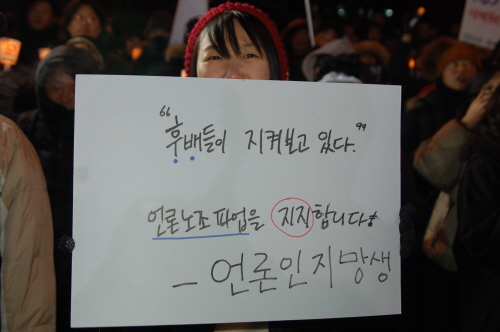 "후배들이 지켜보고 있다."
언론노조 파업을 지지합니다
— 언론인 지망생